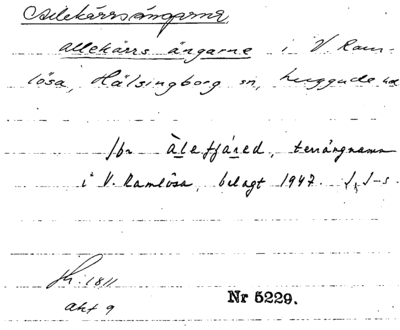 Allekärrsängarne
Allekärrs ängarne i V. Ram-
lösa, Hälsingborg sn, Luggude hd
Jbr Älefjåred, terrängnamn
i V. Ramlösa, belagt 1947. J, J-s.
1811
akt 9
Nr 5229.